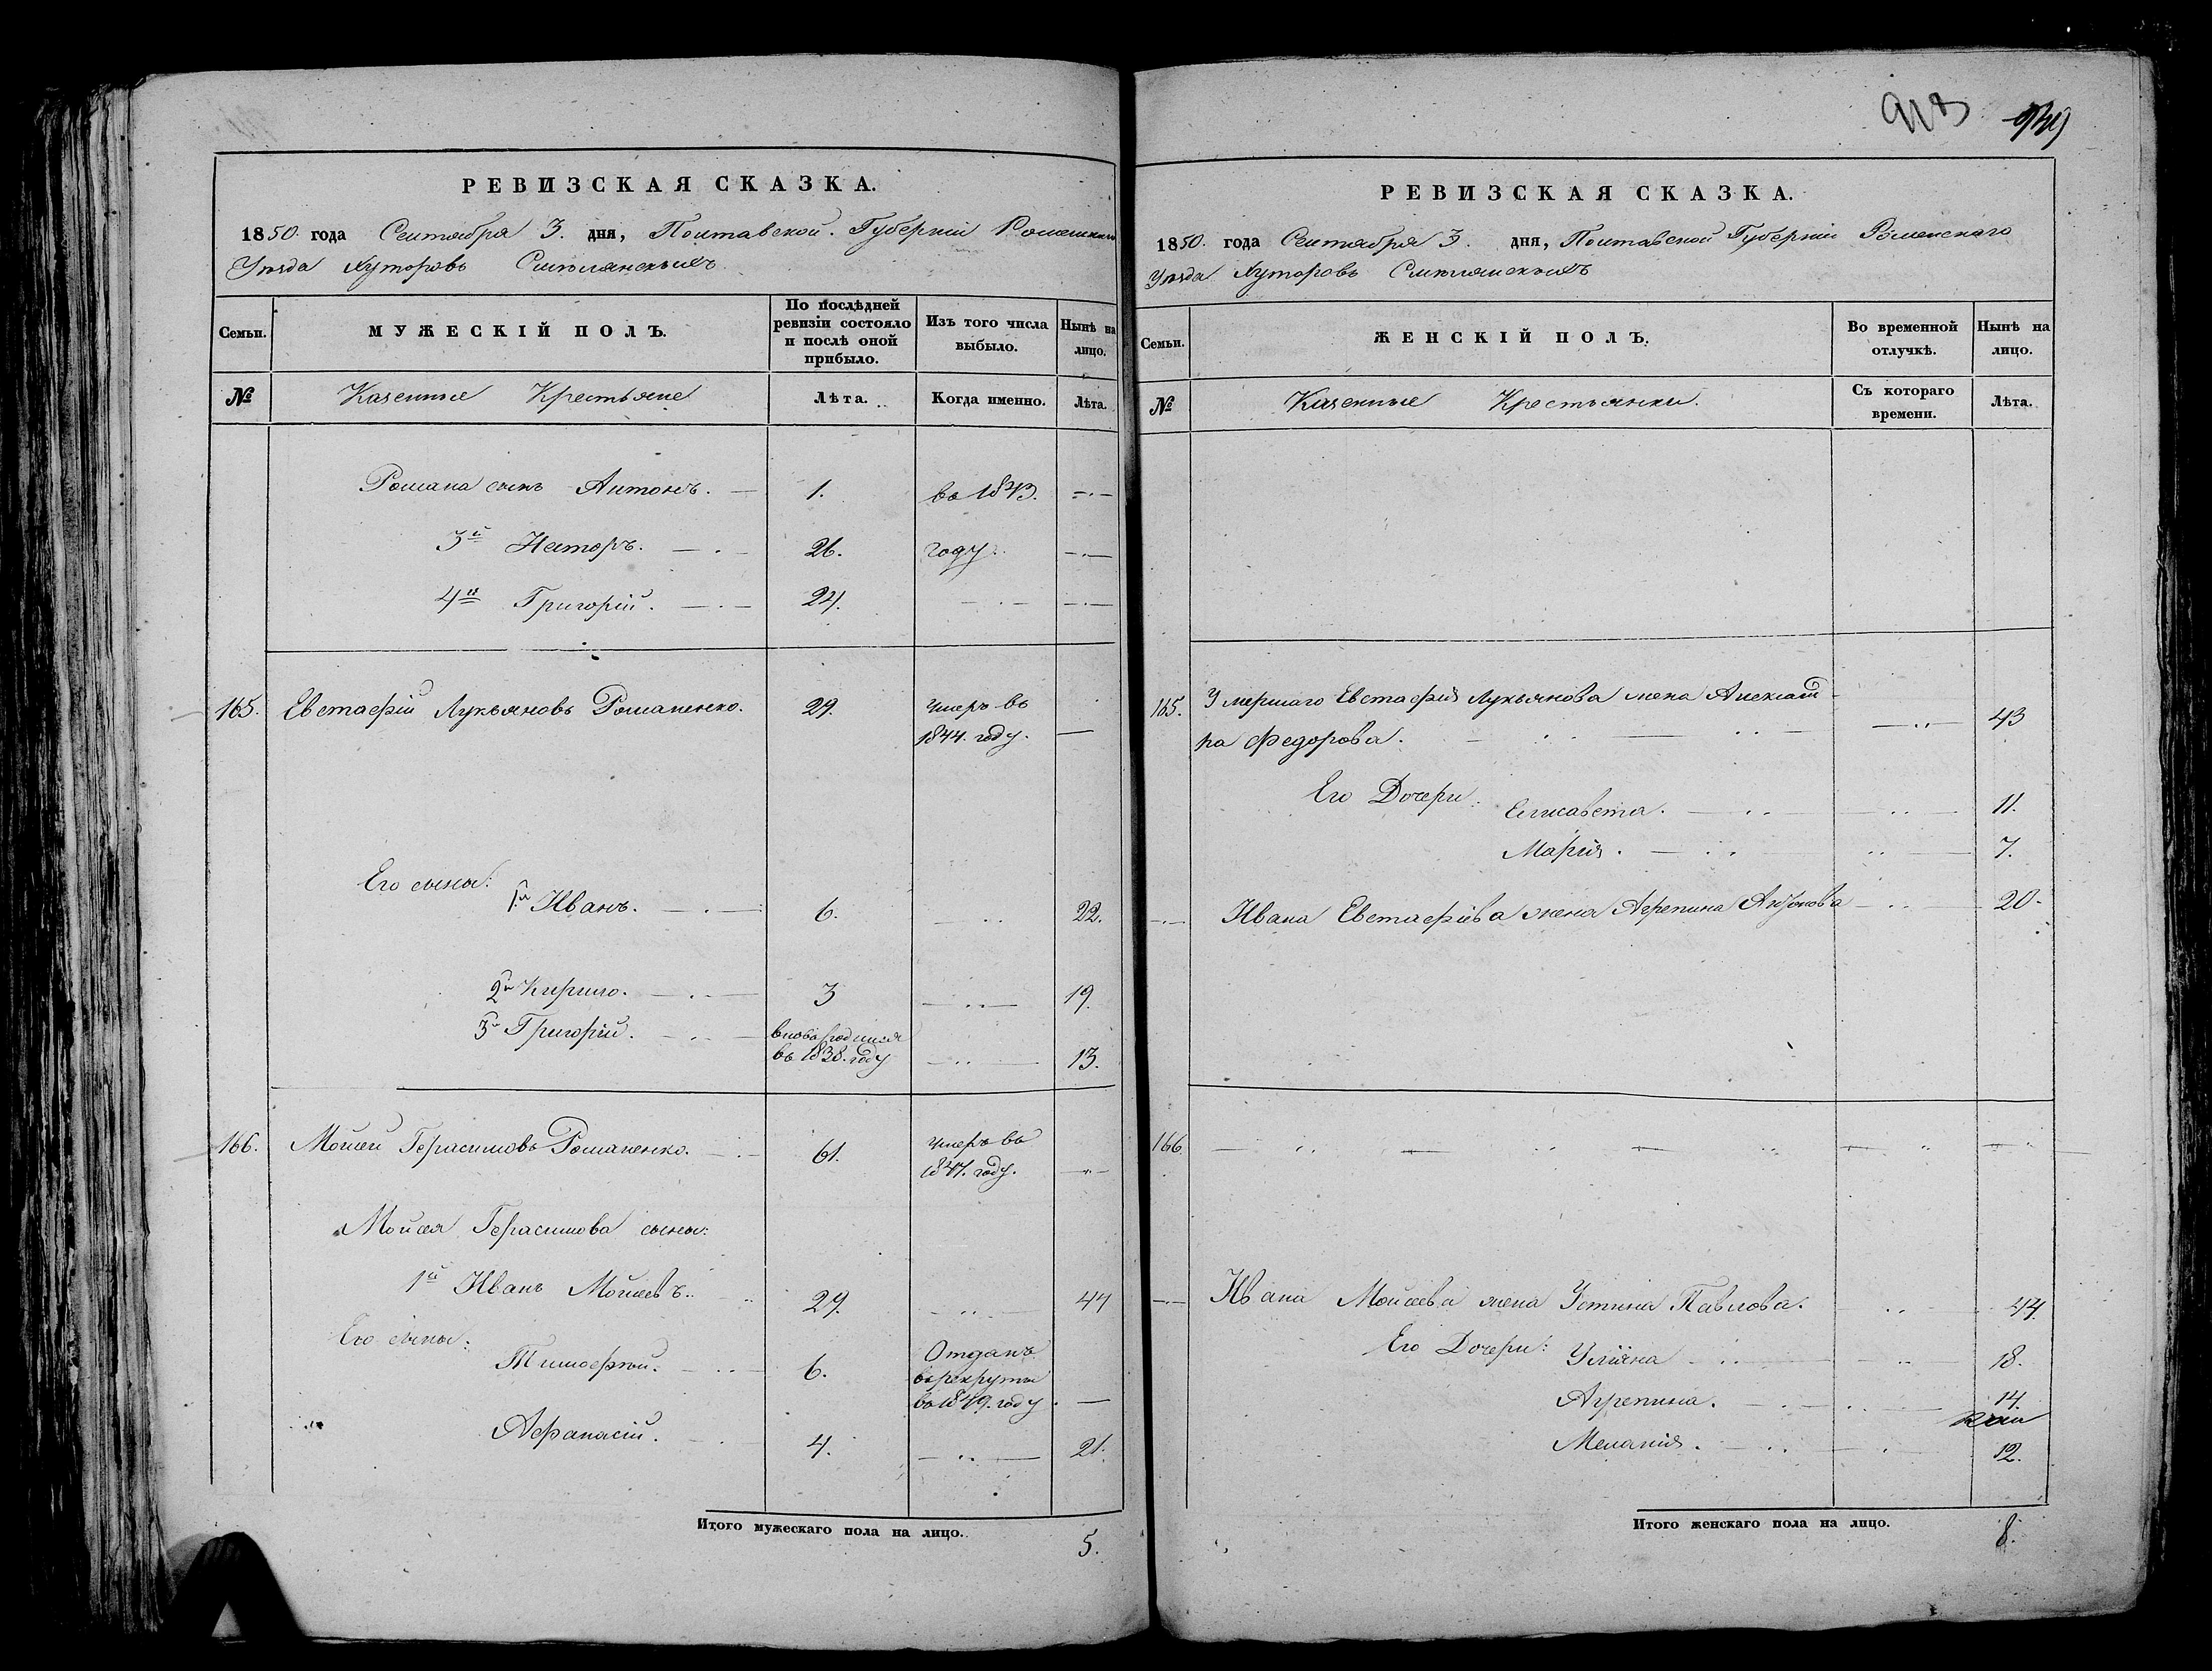 913 939
РЕВИЗСКАЯ СКАЗКА.
1850. года Сентября 3. дня, Полтавской. Губерніи Роменскаго
Уѣзда Хуторовъ Смѣлянскихъ
Семьи.
МУЖЕСКІЙ ПОЛЪ.
По послѣдней ревизіи состояло и послѣ оной прибыло.
Изъ того числа выбыло.
Нынѣ на лицо.
№
Казенные Крестьяне
Лѣта.
Когда именно.
Лѣта.
Романа сынъ Антонъ. 1. въ 1843.
3й Несторъ. 26. году.
4й Григорій. 24.
165. Евстафій Лукьяновъ Романенко. 29. умеръ въ
1844. году.
Его сыны:
1й Иванъ. 6. 22.
2й Кирило. 3 19.
3й Григорій. вновь родился
въ 1838. году 13.
166. Мойсей Герасимовъ Романенко. 61. умеръ въ
1847. году.
Мойсея Герасимова сыны:
1й Иванъ Мойсеевъ. 29. 44
Его сыны:
Тимофѣй. 6. Отданъ
въ рекруты
въ 1849. году.
Афанасій. 4. 21.
Итого мужескаго пола на лицо. 5.
РЕВИЗСКАЯ СКАЗКА.
1850. года Сентября 3. дня, Полтавской Губерніи Роменскаго
Уѣзда Хуторовъ Смѣлянскихъ
Семьи.
ЖЕНСКІЙ ПОЛЪ.
Во временной отлучкѣ.
Нынѣ на лицо.
№
Казенные Крестьянки.
Съ котораго времени.
Лѣта.
165. Умершаго Евстафія Лукьянова жена Александ-
ра Федорова. 43
Его Дочери:
Елисавета. 11.
Марія. 7.
Ивана Евстафіева жена Агрепина Антонова 20.
166.
Ивана Мойсеева жена Устина Павлова. 44.
Его Дочери: Уліяна 18.
Агрепина. 14.
Меланія. 12.
Итого женскаго пола на лицо. 8.